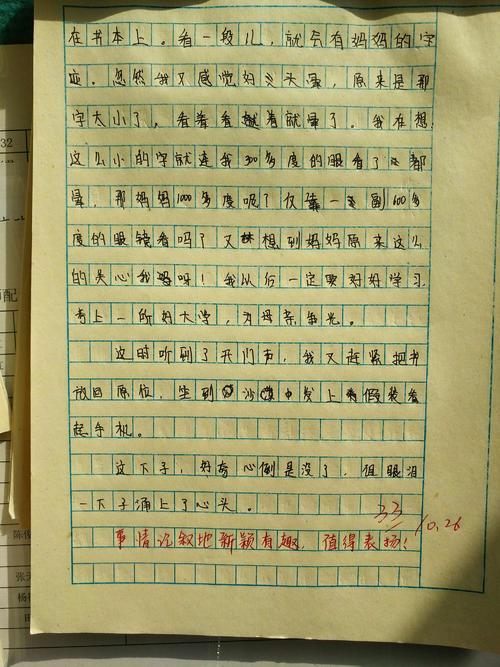 在书本上。看一段儿，就会有妈妈的字
迹。忽然我又感觉好头晕，原来是那
字太小了，看着看着就晕了。我在想，
这么小的字就连我300多度的眼看了都
晕，那妈妈1000多度呢？仅靠一副600多
度的眼镜看吗？又想到妈妈原来这么
的关心我呀！我以后一定要好好学习，
考上一所好大学，为母亲争光。
这时听到了开门声，我又赶紧把书
放回原位，坐到沙发上假装看
起手机。
这下子，好奇心倒是没了，但眼泪
一下子涌上了心头。
33
10.26
事情记叙地新颖有趣，值得表扬！
32
配
陈
张
杨